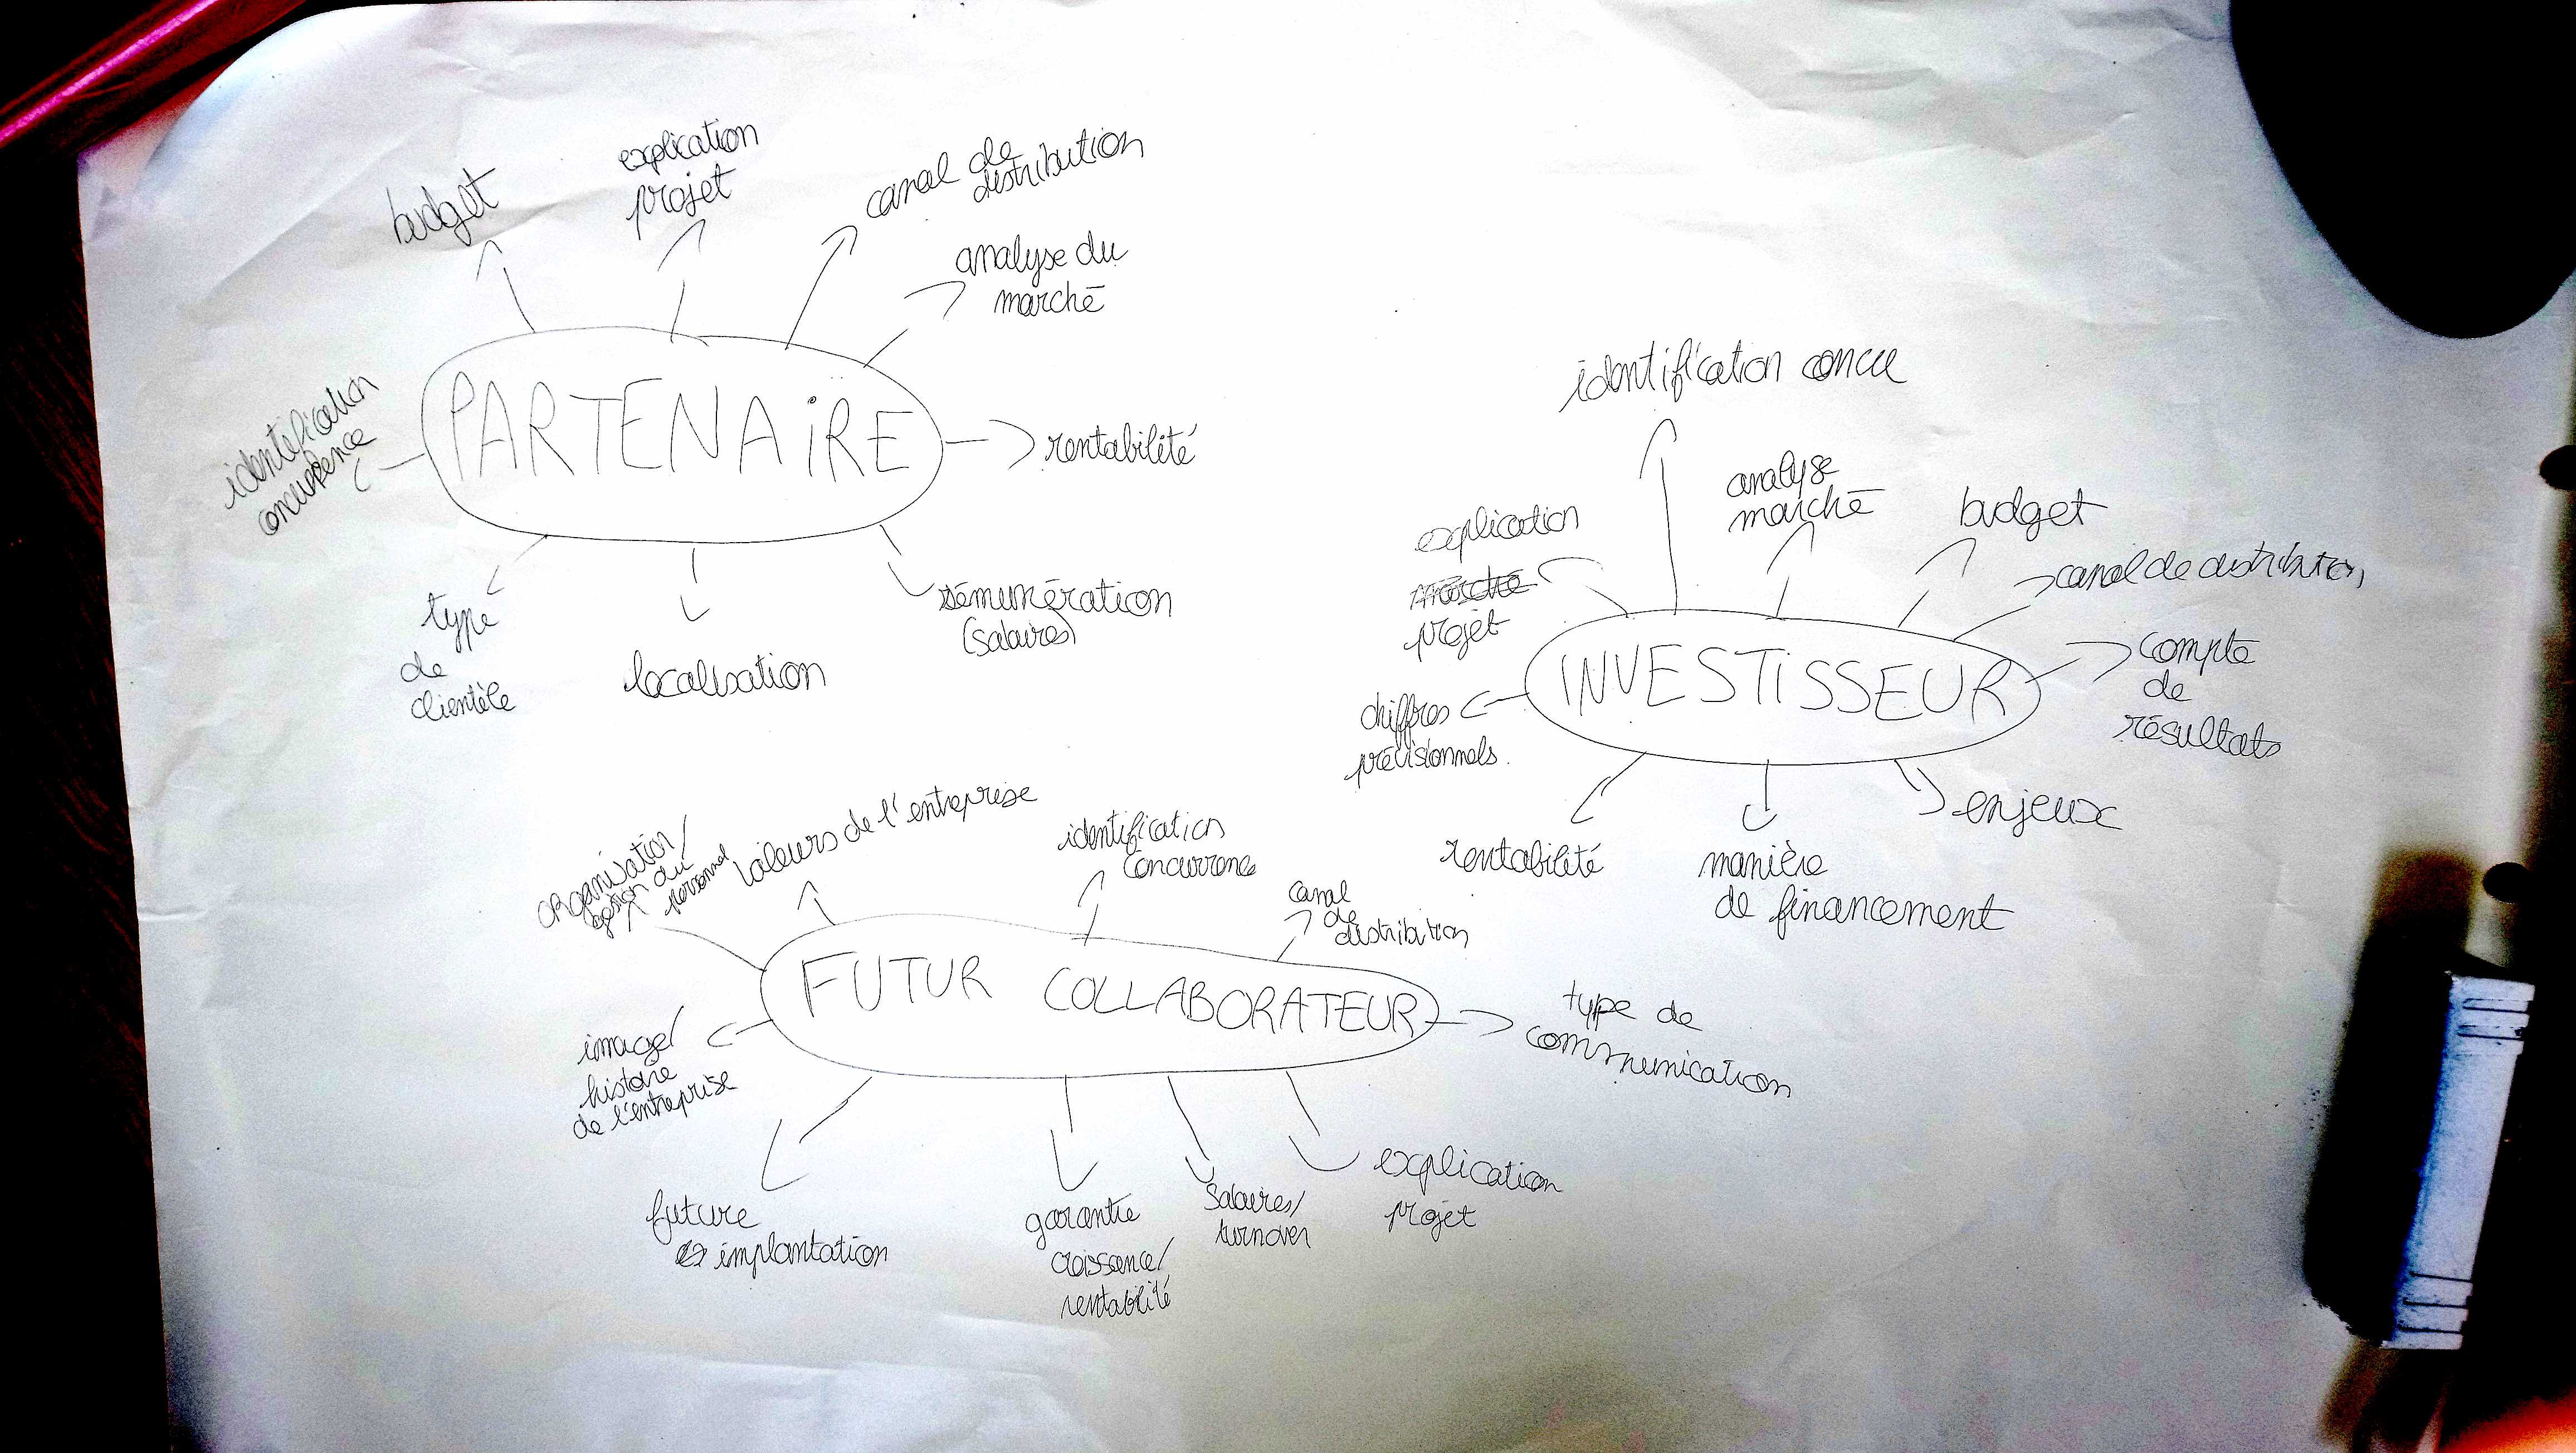 budget
explication
projet
canal de
distribution
analyse du
marché
identification
concurrence
PARTENAiRE
rentabilité
type
de
clientèle
localisation
rémunération
(salaires)
identification concu
analyse
marché
explication
marché
projet
budget
canal de distribution
INVESTiSSEUR
compte
de
résultats
chiffres
prévisionnels.
rentabilité
manière
de financement
enjeux
organisation/
gestion du
personnel
valeurs de l'entreprise
identification
concurrence
canal
de
distribution
FUTUR COLLABORATEUR
type de
communication
image/
histoire
de l'entreprise
future
implantation
garantie
croissance/
rentabilité
Salaires/
turnover
explication
projet